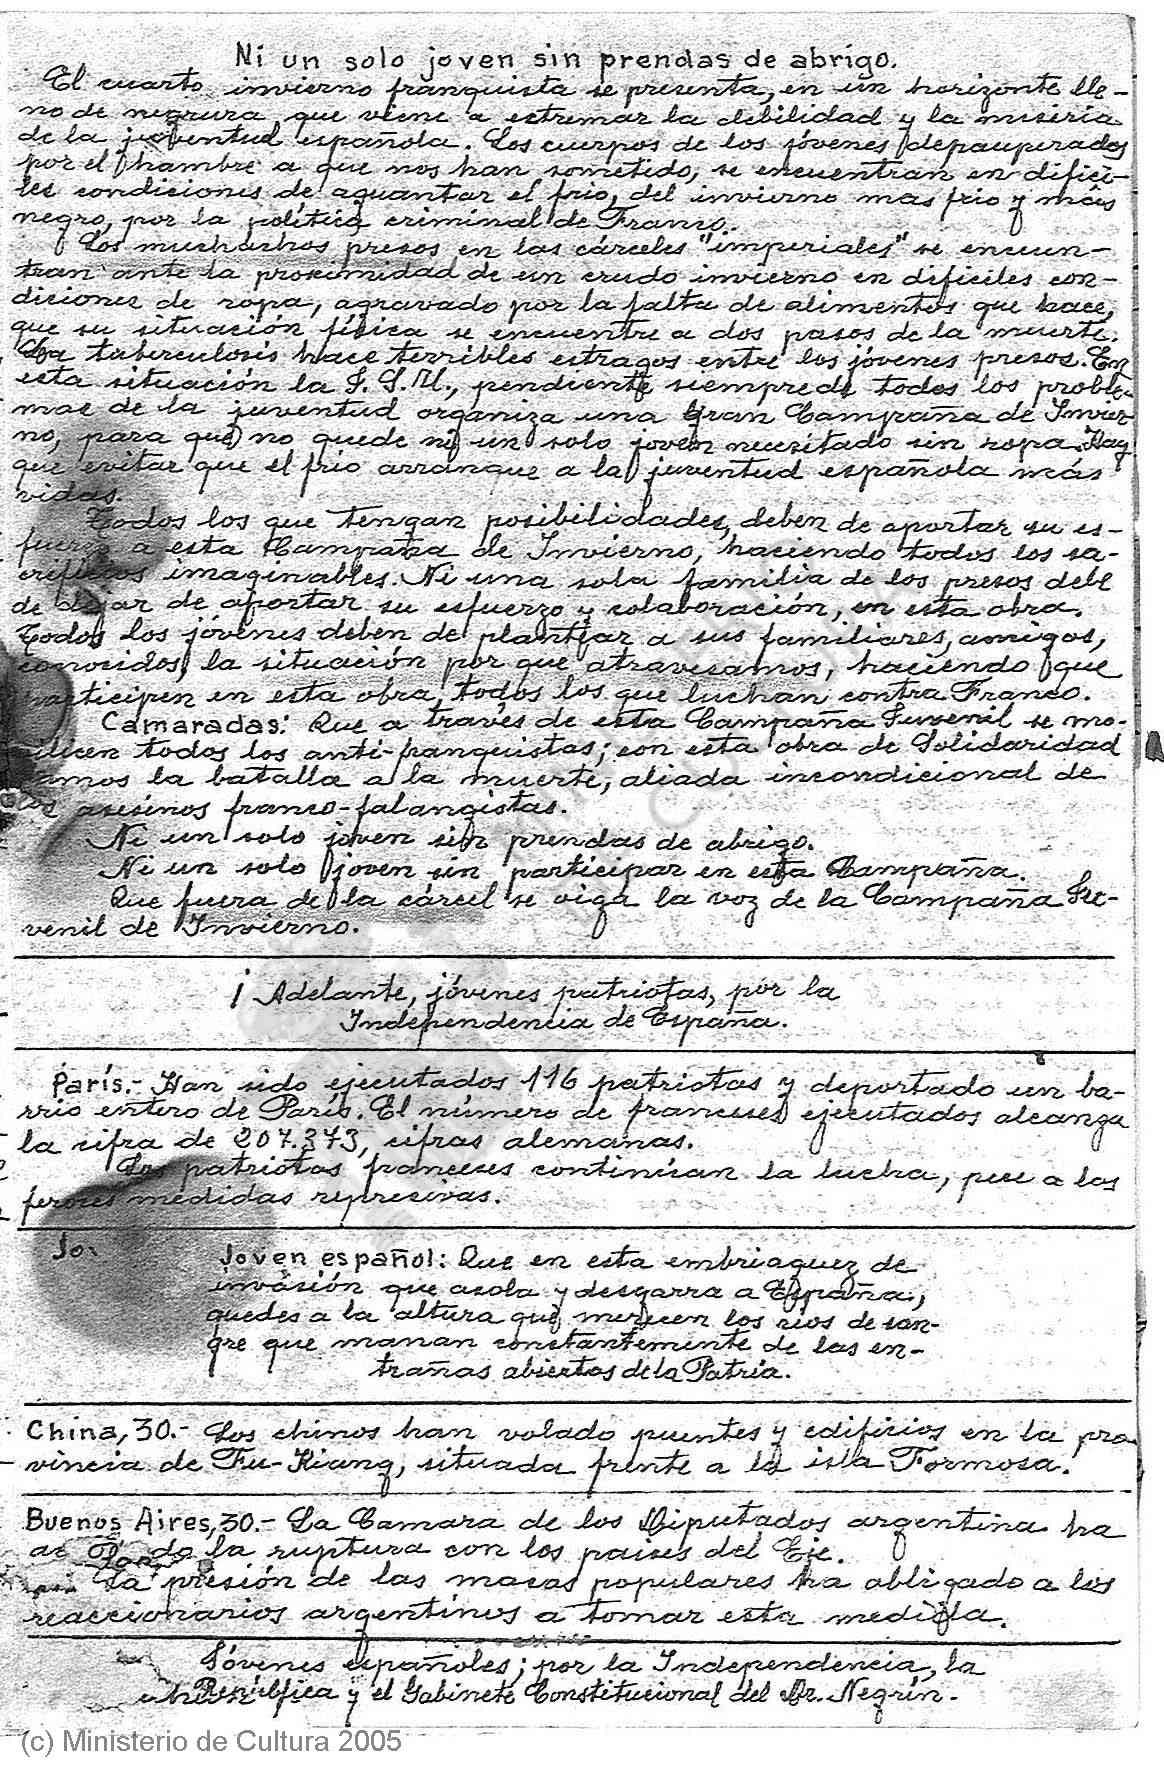 Ni un solo joven sin prendas de abrigo.
El cuarto invierno franquista se presenta, en un horizonte lle-
no de negrura que viene a estremar la debilidad y la miseria
de la juventud española. Los cuerpos de los jóvenes depauperados
por el hambre a que nos han sometido, se encuentran en difici-
les condiciones de aguantar el frio, del invierno mas frio y más
negro, por la política criminal de Franco.
Los muchachos presos en las cárceles "imperiales" se encuen-
tran ante la proximidad de un crudo invierno en dificiles con-
diciones de ropa, agravado por la falta de alimentos que hace,
que su situación física se encuentre a dos pasos de la muerte.
La tuberculosis hace terribles estragos entre los jóvenes presos. En
esta situación la J.S.U., pendiente siempre de todos los proble-
mas de la juventud organiza una gran Campaña de Invier-
no, para que no quede ni un solo joven necesitado sin ropa. Hay
que evitar que el frio arranque a la juventud española más
vidas.
Todos los que tengan posibilidades, deben de aportar su es-
fuerzo a esta Campaña de Invierno, haciendo todos los sa-
crificios imaginables. Ni una sola familia de los presos debe
de dejar de aportar su esfuerzo y colaboración, en esta obra.
Todos los jóvenes deben de plantear a sus familiares, amigos,
conocidos, la situación por que atravesamos, haciendo que
participen en esta obra, todos los que luchan contra Franco.
Camaradas: Que a través de esta Campaña Juvenil se mo-
vilicen todos los anti-franquistas; con esta obra de Solidaridad
ganamos la batalla a la muerte, aliada incondicional de
los asesinos franco-falangistas.
Ni un solo joven sin prendas de abrigo.
Ni un solo joven sin participar en esta Campaña.
Que fuera de la cárcel se oiga la voz de la Campaña Ju-
venil de Invierno.
¡ Adelante, jóvenes patriotas, por la
Independencia de España.
París.- Han sido ejecutados 116 patriotas y deportado un ba-
rrio entero de París. El número de franceses ejecutados alcanza
la cifra de 207.373, cifras alemanas.
Los patriotas franceses continúan la lucha, pese a las
feroces medidas represivas.
Jo.
Joven español: Que en esta embriaguez de
invasión que asola y desgarra a España,
quedes a la altura que merecen los rios de san-
gre que manan constantemente de las en-
trañas abiertas de la Patria.
China, 30.- Los chinos han volado puentes y edificios en la pro-
vincia de Fu-Kiang, situada frente a la isla Formosa.
Buenos Aires, 30.- La Camara de los Diputados argentina ha
la ruptura con los paises del Eje.
La presión de las masas populares ha obligado a los
reaccionarios argentinos a tomar esta medida.
Jóvenes españoles; por la Independencia, la
República y el Gabinete Constitucional del Dr. Negrín.
(c) Ministerio de Cultura 2005